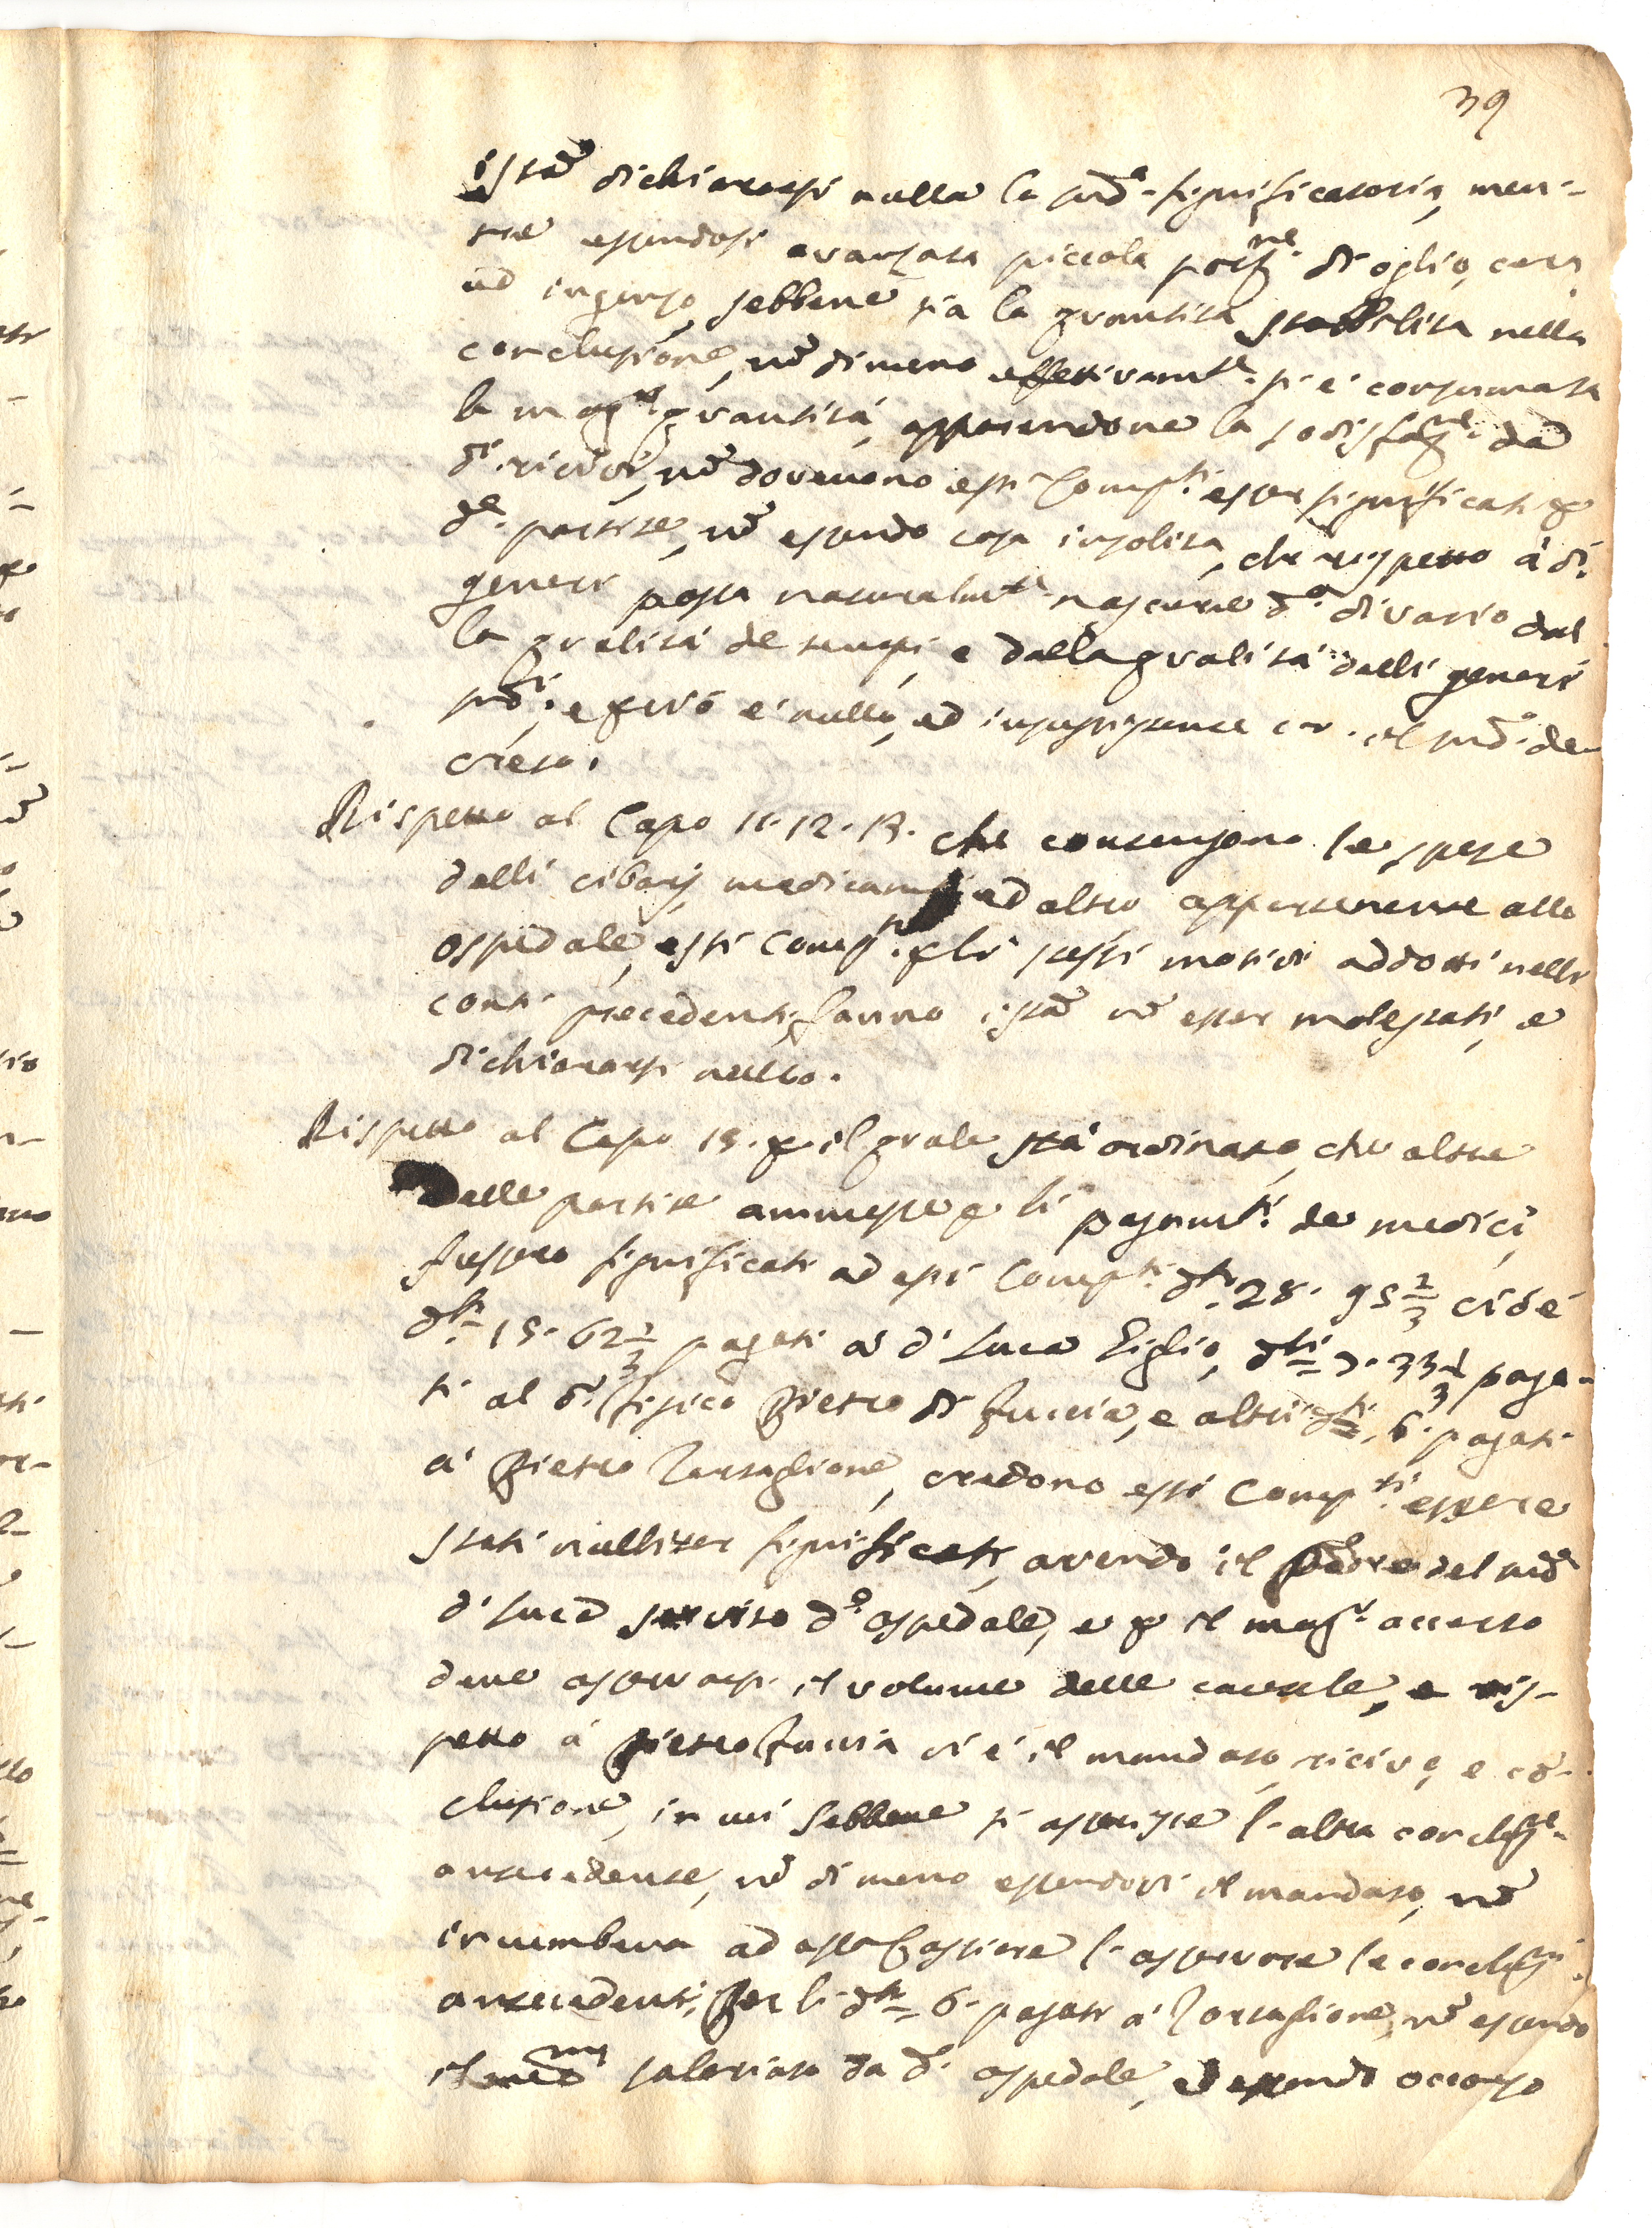 39
istã dichiararsi nulla la sud.ª significatoria, men-
tre essendosi avanzata piccola porz.ne di oglio, cera
ed ingenzo, sebbene sia la quantità stabbilita nella
conclusione, nõ dimeno effettivam.te si è consumata
la mag.r quantità, apparendone la sodisfaz.ne da
d.i ricivi, nõ dovevono essi Comp.ti esser significati p
d.e partite, nõ essendo cosa insolita, che rispetto à d.i
generi possa naturalm.te nascere d.o divario dal
la qualità de tempi, e dalla qualità delli generi
sud.i, e però è nullo, ed insussistente il sud.o de-
creto.
Rispetto al Capo 11. 12. 13. che contengono le spese
delli cibarj, medicam.ti ed altro appartenente allo
ospedale, essi Comp.ti p li stessi motivi addotti nelli
conti precedenti, fanno istã nõ esser molestati, e
dichiararsi nullo.
Rispetto al Capo 15. p il quale stà ordinato, che oltre
Dalle partite ammesse p li pagam.ti de medici,
fussero significati ad essi Comp.ti d.ti 28. 95 2/3 cioè
d.ti 15. 62 1/3 pagati à d. Luca Giglio, d.ti 7. 33 1/3 paga-
ti al d.r fisico Pietro di Fuccia, e altri d.ti 6. pagati
à Pietro Tartaglione, credono essi Comp.ti essere
stati nulliter significati, avendo il Padre del med.o
d. Luca servito d.o ospedale, e p il mag.r accerto
deve osservarsi il volume delle cautele, e ris-
petto à Pietro Fuccia vi è il mandato, ricivo, e cõ-
clusione, in cui sebbene si asserisce l'altra concluz.ne
antecedente, nõ di meno essendovi il mandato, nõ
incumbeva ad essi Cassiere l'osservare le concluz.ni
antecedenti. Per li d.ti 6. pagati à Tartaglione, nõ essendo
il med.mo salariato da d.o ospedale, ed essendo occorso